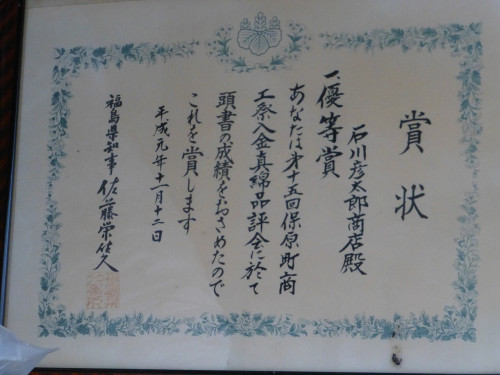 賞状
石川彦太郎商店殿
一、優等賞
あなたは第十五回保原町商
工祭入金真綿品評会に於て
頭書の成績をおさめたので
これを賞します
平成元年十一月十二日
福島県知事 佐藤栄佐久